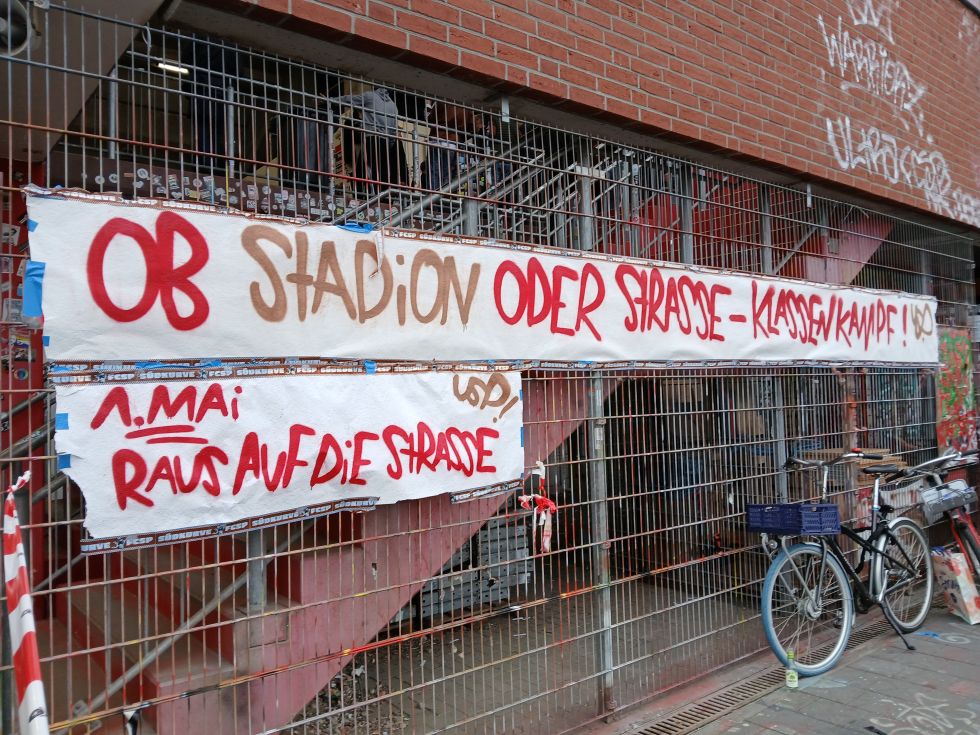 WARRIORZ
ULTRA CREW
OB STADION ODER STRASSE – KLASSENKAMPF! USP
FCSP SÜDKURVE
1. MAI
USP!
RAUS AUF DIE STRASSE
FCSP SÜDKURVE